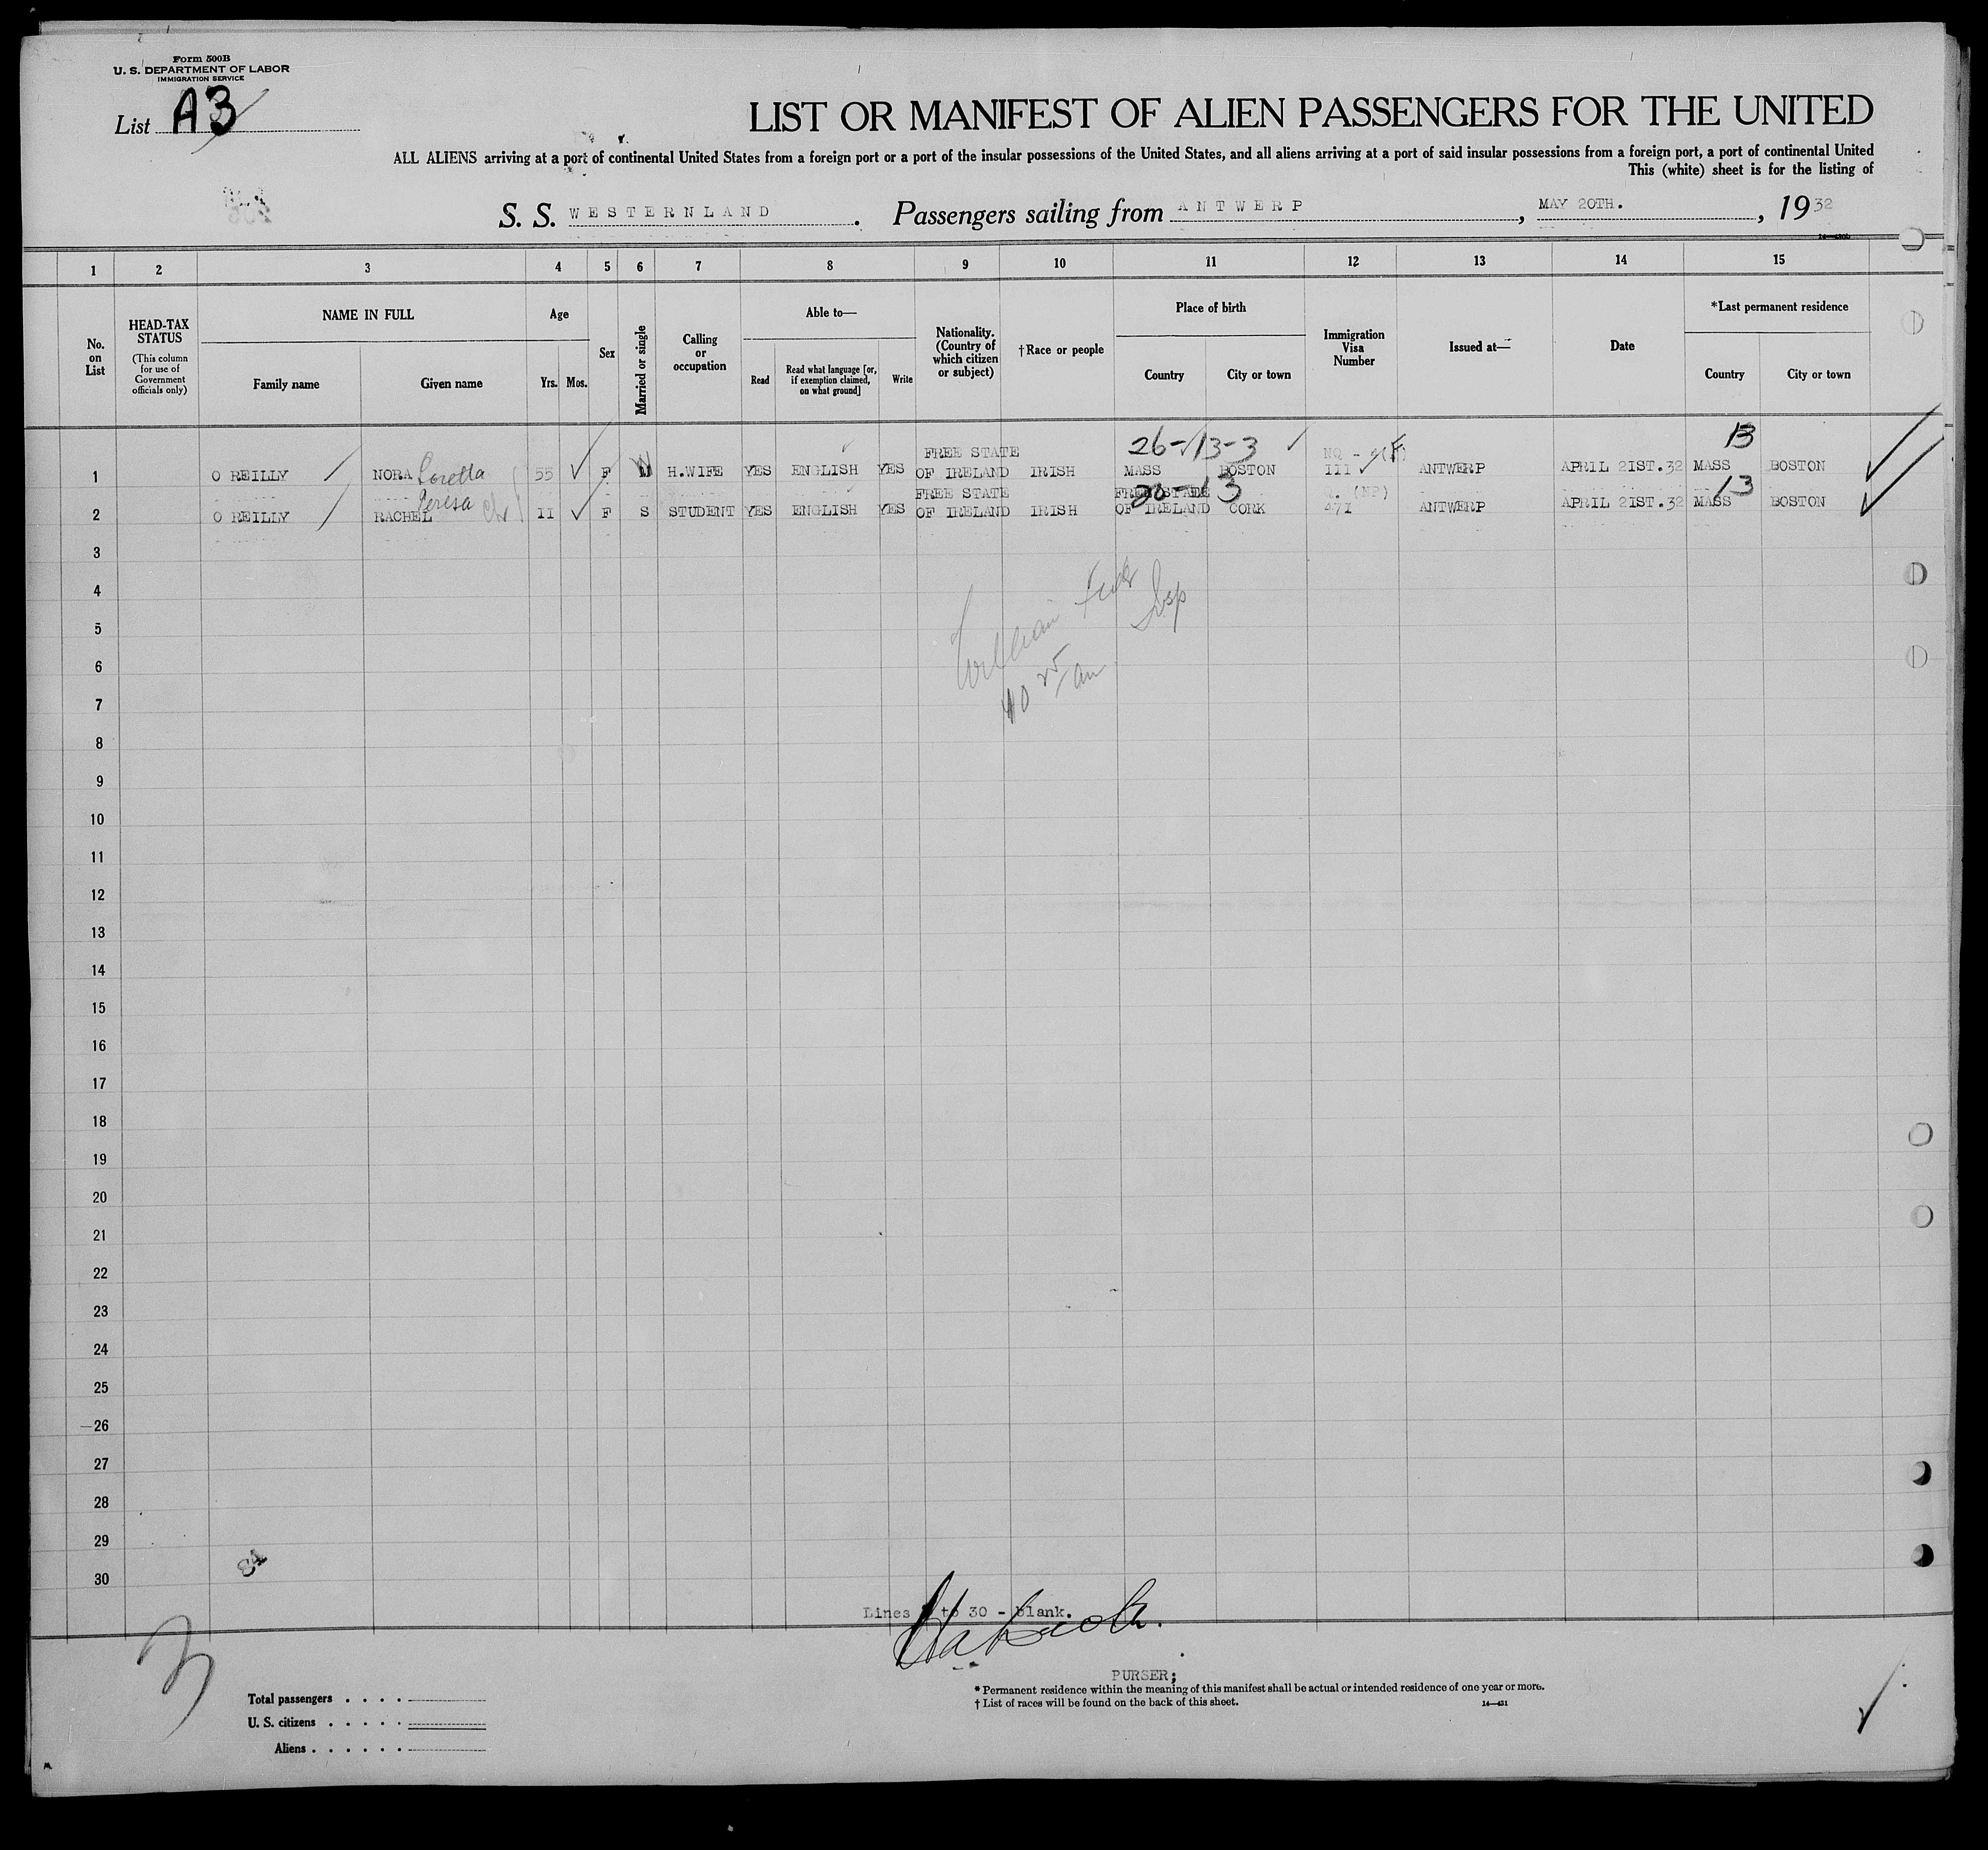 Form 500B
U. S. DEPARTMENT OF LABOR
IMMIGRATION SERVICE
List A3
LIST OR MANIFEST OF ALIEN PASSENGERS FOR THE UNITED
ALL ALIENS arriving at a port of continental United States from a foreign port or a port of the insular possessions of the United States, and all aliens arriving at a port of said insular possessions from a foreign port, a port of continental United
This (white) sheet is for the listing of
S. S. WESTERNLAND. Passengers sailing from ANTWERP, MAY 20TH., 1932
1 2 3 4 5 6 7 8 9 10 11 12 13 14 15
No. on List
HEAD-TAX STATUS
(This column for use of Government officials only)
NAME IN FULL
Family name Given name
Age
Yrs. Mos.
Sex
Married or single
Calling or occupation
Able to—
Read
Read what language [or, if exemption claimed, on what ground]
Write
Nationality. (Country of which citizen or subject)
†Race or people
Place of birth
Country City or town
Immigration Visa Number
Issued at—
Date
*Last permanent residence
Country City or town
26-13-3 13
FREE STATE
1 O REILLY NORA Loretta 55 F M H.WIFE YES ENGLISH YES OF IRELAND IRISH MASS BOSTON III ANTWERP APRIL 2IST.32 MASS BOSTON
FREE STATE FREE STATE 20-13 (NP) 13
2 O REILLY RACHEL Teresa II F S STUDENT YES ENGLISH YES OF IRELAND IRISH OF IRELAND CORK ANTWERP APRIL 2IST.32 MASS BOSTON
3
4
5
William Insp
6
7
8
9
10
11
12
13
14
15
16
17
18
19
20
21
22
23
24
25
26
27
28
29
30
84
Lines to 30 - blank.
PURSER;
* Permanent residence within the meaning of this manifest shall be actual or intended residence of one year or more.
† List of races will be found on the back of this sheet.
14—431
Total passengers
U. S. citizens
Aliens